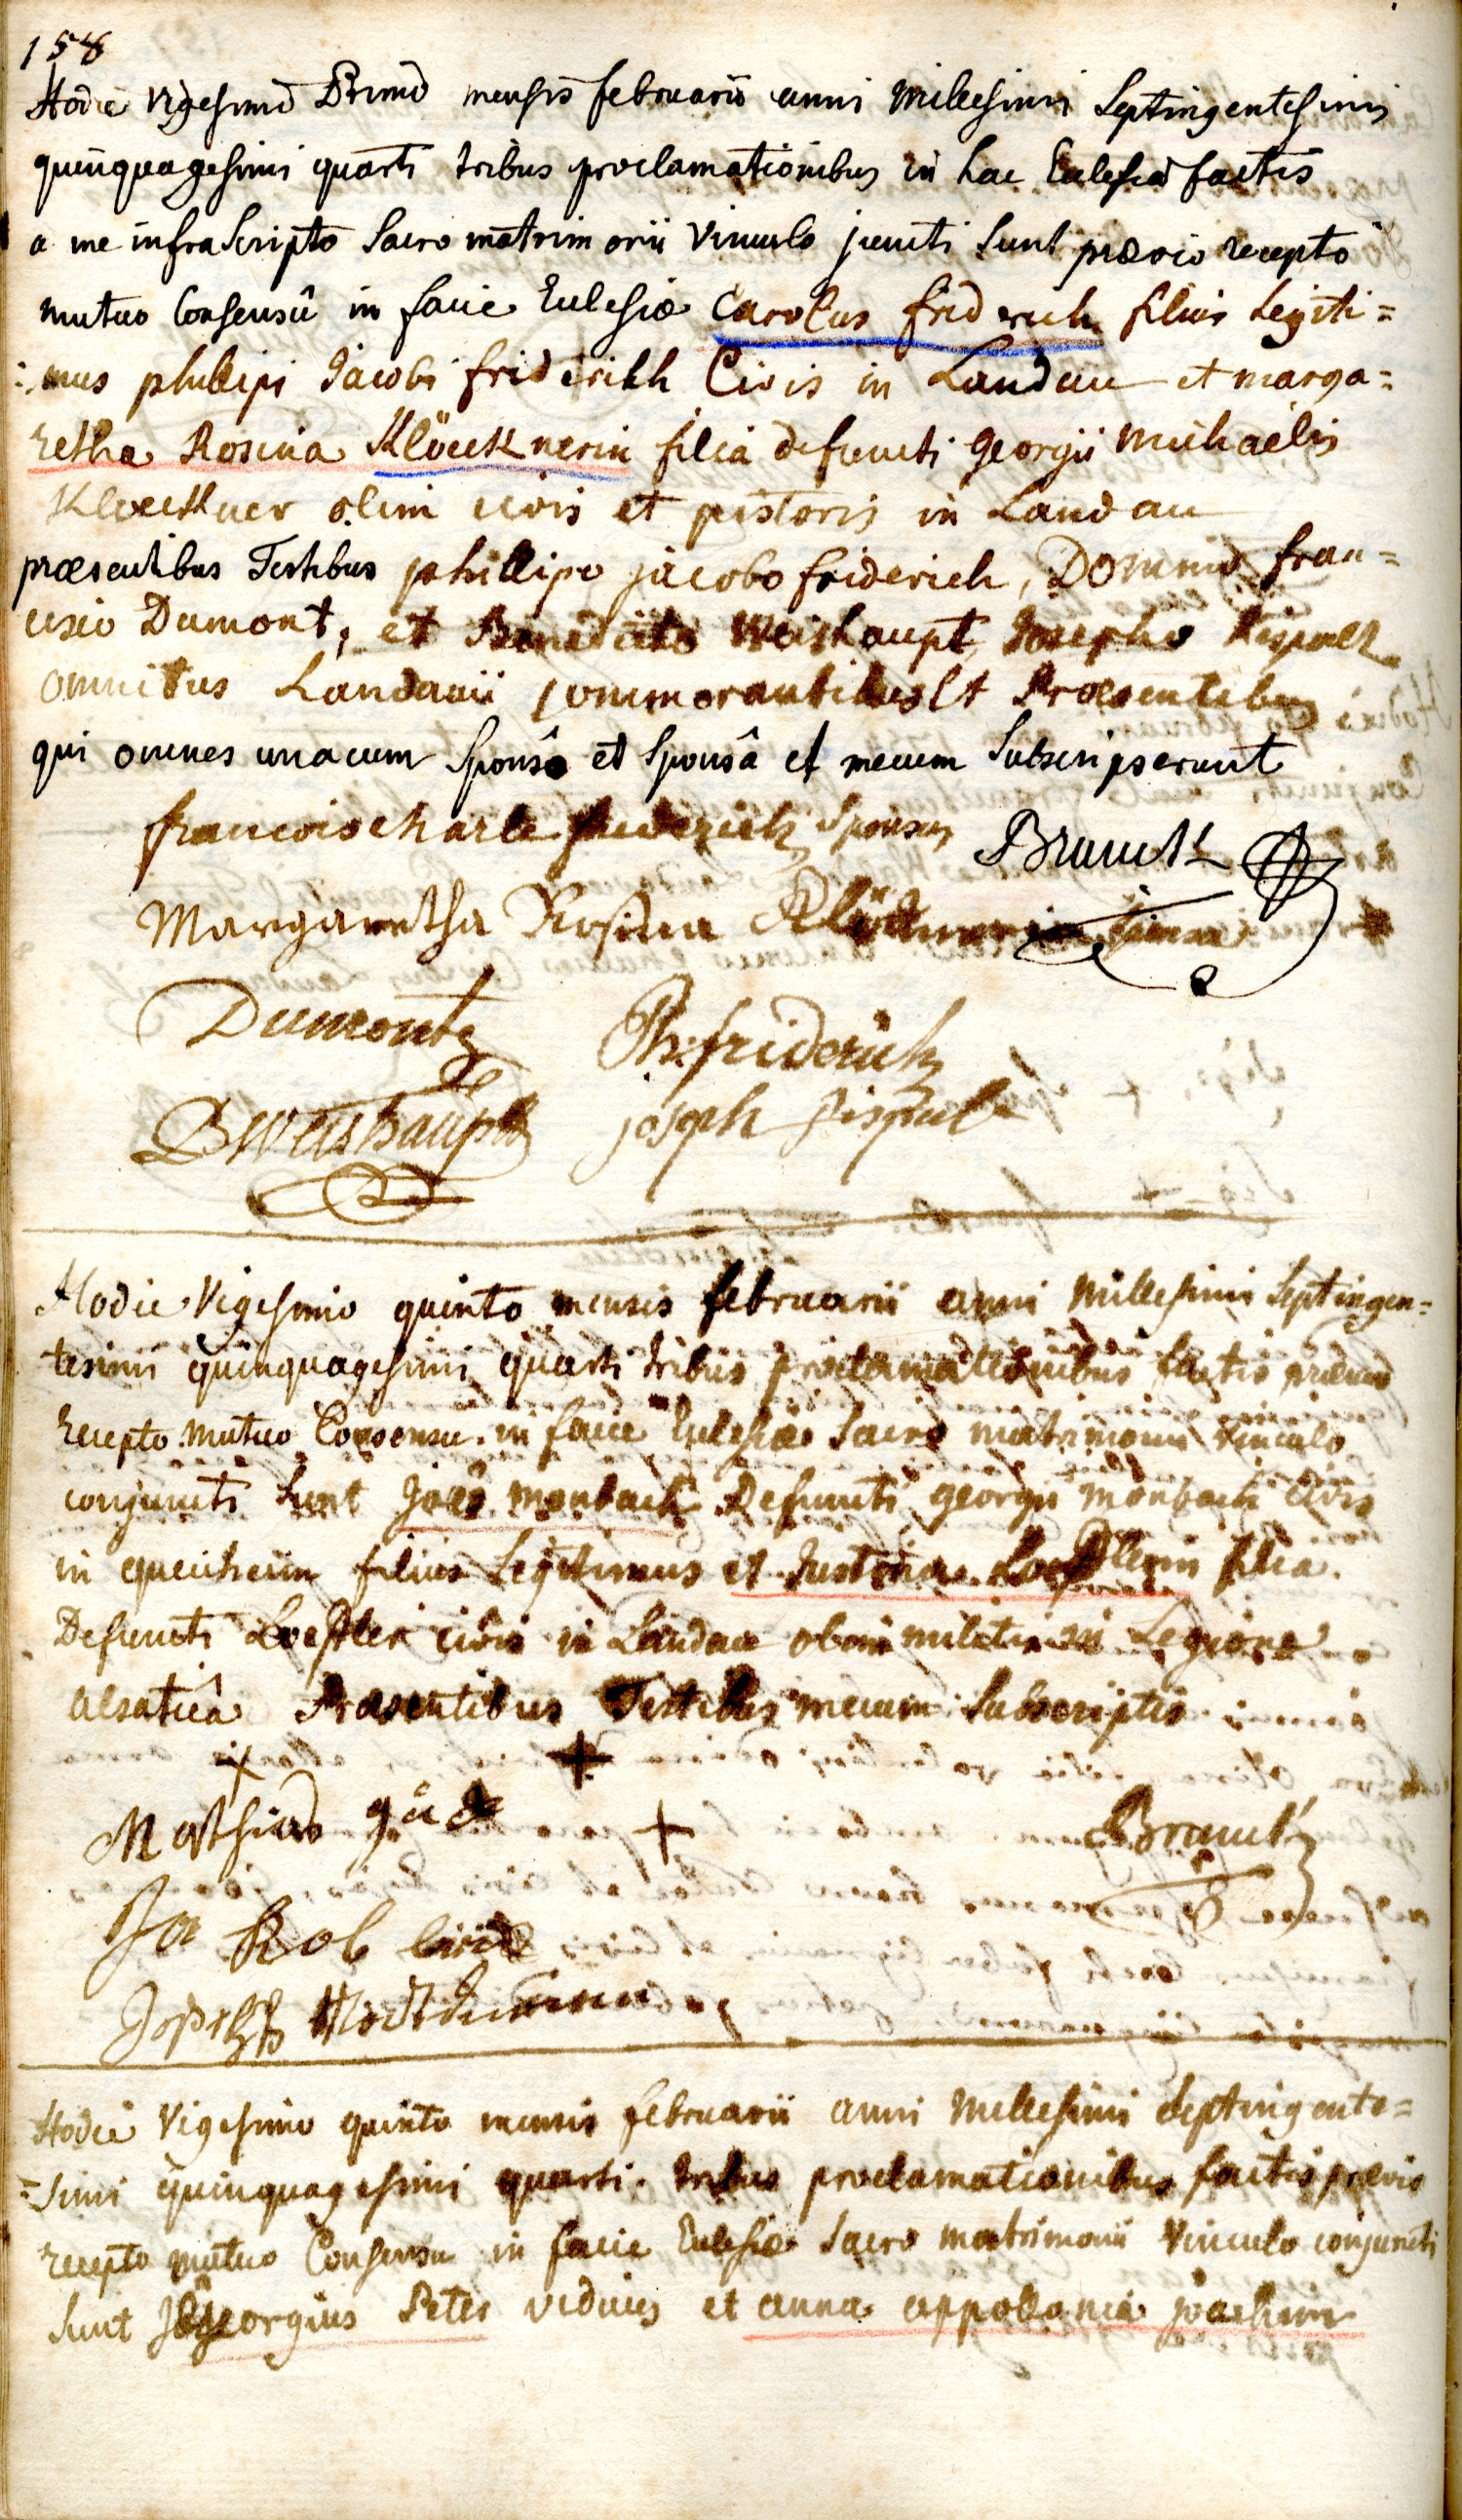 158
Hodie vigesimo Primo mensis februarii anni millesimi Septingentesimi
quinquagesimi quarti tribus proclamationibus in hac Ecclesiâ factis
a me infrascripto Sacro matrimonii Vinculo juncti sunt prævio recepto
mutuo Consensû in facie Ecclesiæ Carolus friderich filius Legiti=
=mus phillipi Jacobi friderich Civis in Landau et marga=
retha Rosina Klöcknerin filia defuncti Georgii Michaëlis
Kloeckner olim civis et pistoris in Landau
præsentibus Testibus phillipo jacobo friderich, Domino fran=
cisco Dumont, et Benedicto Weishaupt Josepho
omnibus Landavii commorantibus et Præsentibus
qui omnes unacum Sponso et Sponsâ et mecum Subscripserunt
francois charle friderich Sponsus Brunck
Margaretha Rosina Klöcknerin sponsa
Dumont Ph: friderich
BWeishaupt joseph
Hodie Vigesimo quinto mensis februarii anni Millesimi Septingen=
tesimi quinquagesimi quarti tribus proclamationibus factis prævio
recepto mutuo Consensu in facie Ecclesiæ Sacro matrimonii vinculo
conjuncti sunt Joës monbach Defuncti georgii monbach civis
in queicheim filius Legitimus et Justina Loefflerin filia
Defuncti Loeffler civis in Landau olim militis in Legione
alsaticâ Præsentibus Testibus mecum Subscriptis
+ +
Mathias + Brunck
Ja Kob
Joseph
Hodie Vigesimo quinto mensis februarii anni Millesimi Septingente=
=simi quinquagesimi quarti tribus proclamationibus factis prævio
recepto mutuo Consensu in facie Ecclesiæ Sacro matrimonii Vinculo conjuncti
sunt Georgius Peter viduus et anna appollonia joachim